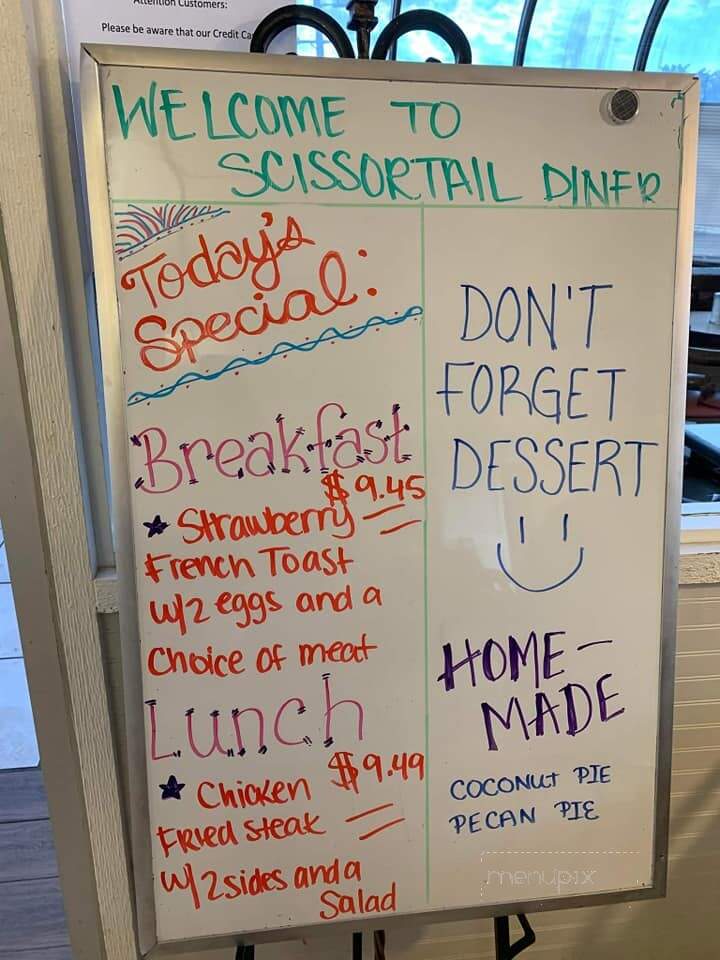 Attention Customers:
Please be aware that our Credit Ca
WELCOME TO
SCISSORTAIL DINER
Today's
Special:
Breakfast
$9.45
★ Strawberry
French Toast
w/2 eggs and a
Choice of meat
Lunch
$9.49
★ Chicken
Fried Steak
w/2 sides and a
Salad
DON'T
FORGET
DESSERT
HOME-
MADE
COCONUT PIE
PECAN PIE
menupix